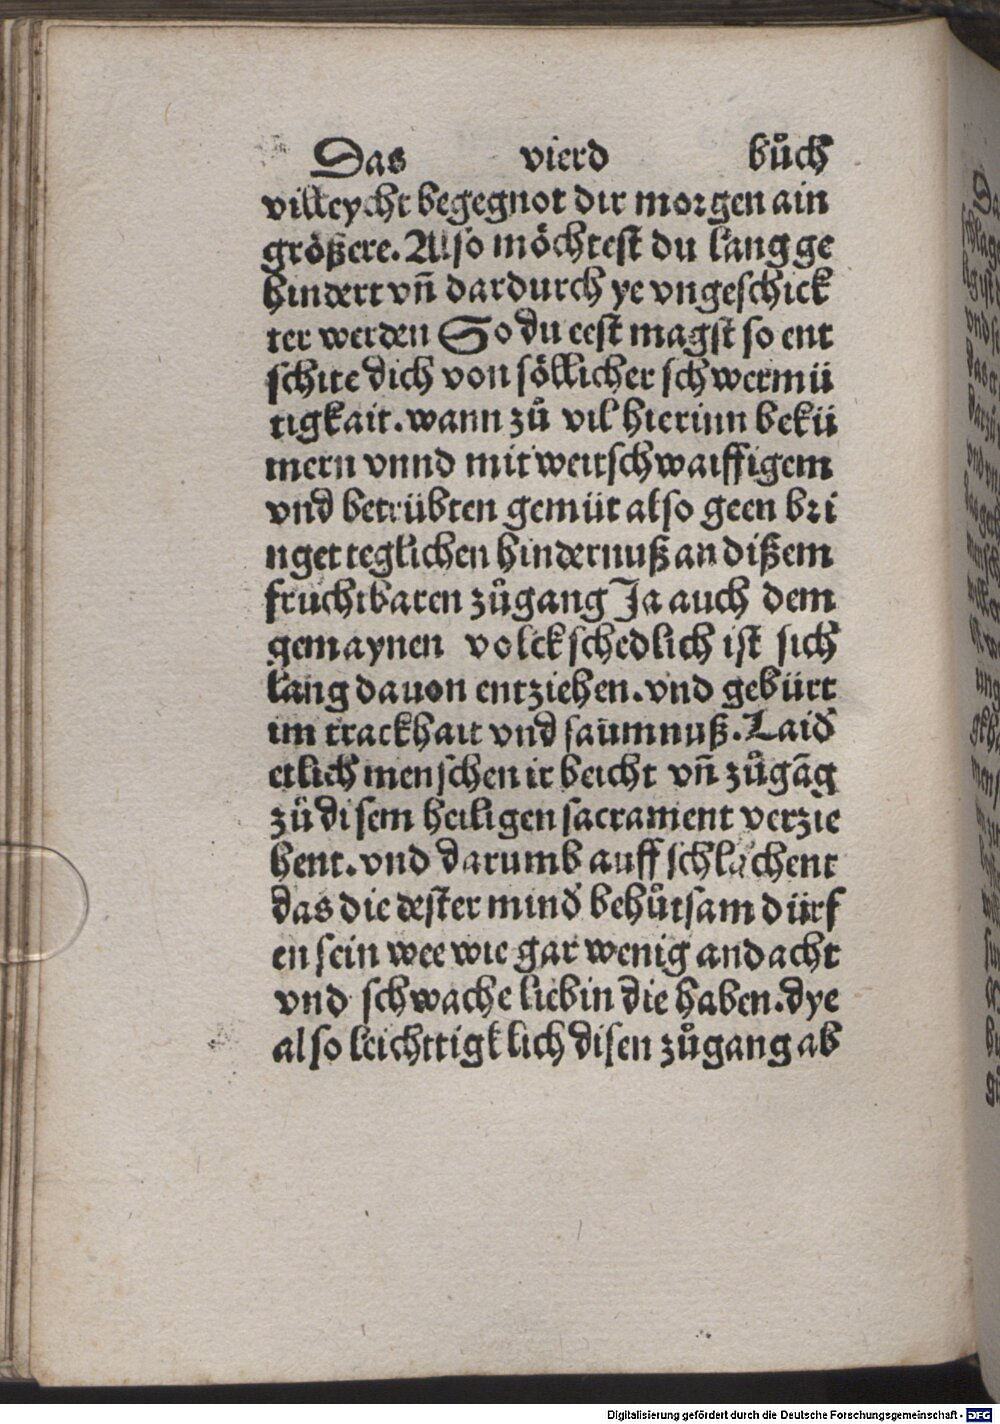 Das vierd bůch
villeycht begegnot dir morgen ain
größere. Also möchtest du lang ge
hindert vn̄ dardurch ye vngeschick
ter werden So du eest magst so ent
schite dich von söllicher schwermü
tigkait. wann zů vil hierinn bekü
mern vnnd mit weitschwaiffigem
vnd betrübten gemüt also geen bri
nget teglichen hindernuß an dißem
fruchtbaren zůgang Ja auch dem
gemaynen volck schedlich ist sich
lang dauon entziehen. vnd gebürt
im trackhait vnd saumnuß. Laid
etlich menschen ir beicht vn̄ zůgāg
zü disem heiligen sacrament verzie
hent. vnd darumb auff schlachent
das die dester mind behůtsam dürf
en sein wee wie gar wenig andacht
vnd schwache lieb in die haben. dye
also leichttigklich disen zůgang ab
Digitalisierung gefördert durch die Deutsche Forschungsgemeinschaft - DFG